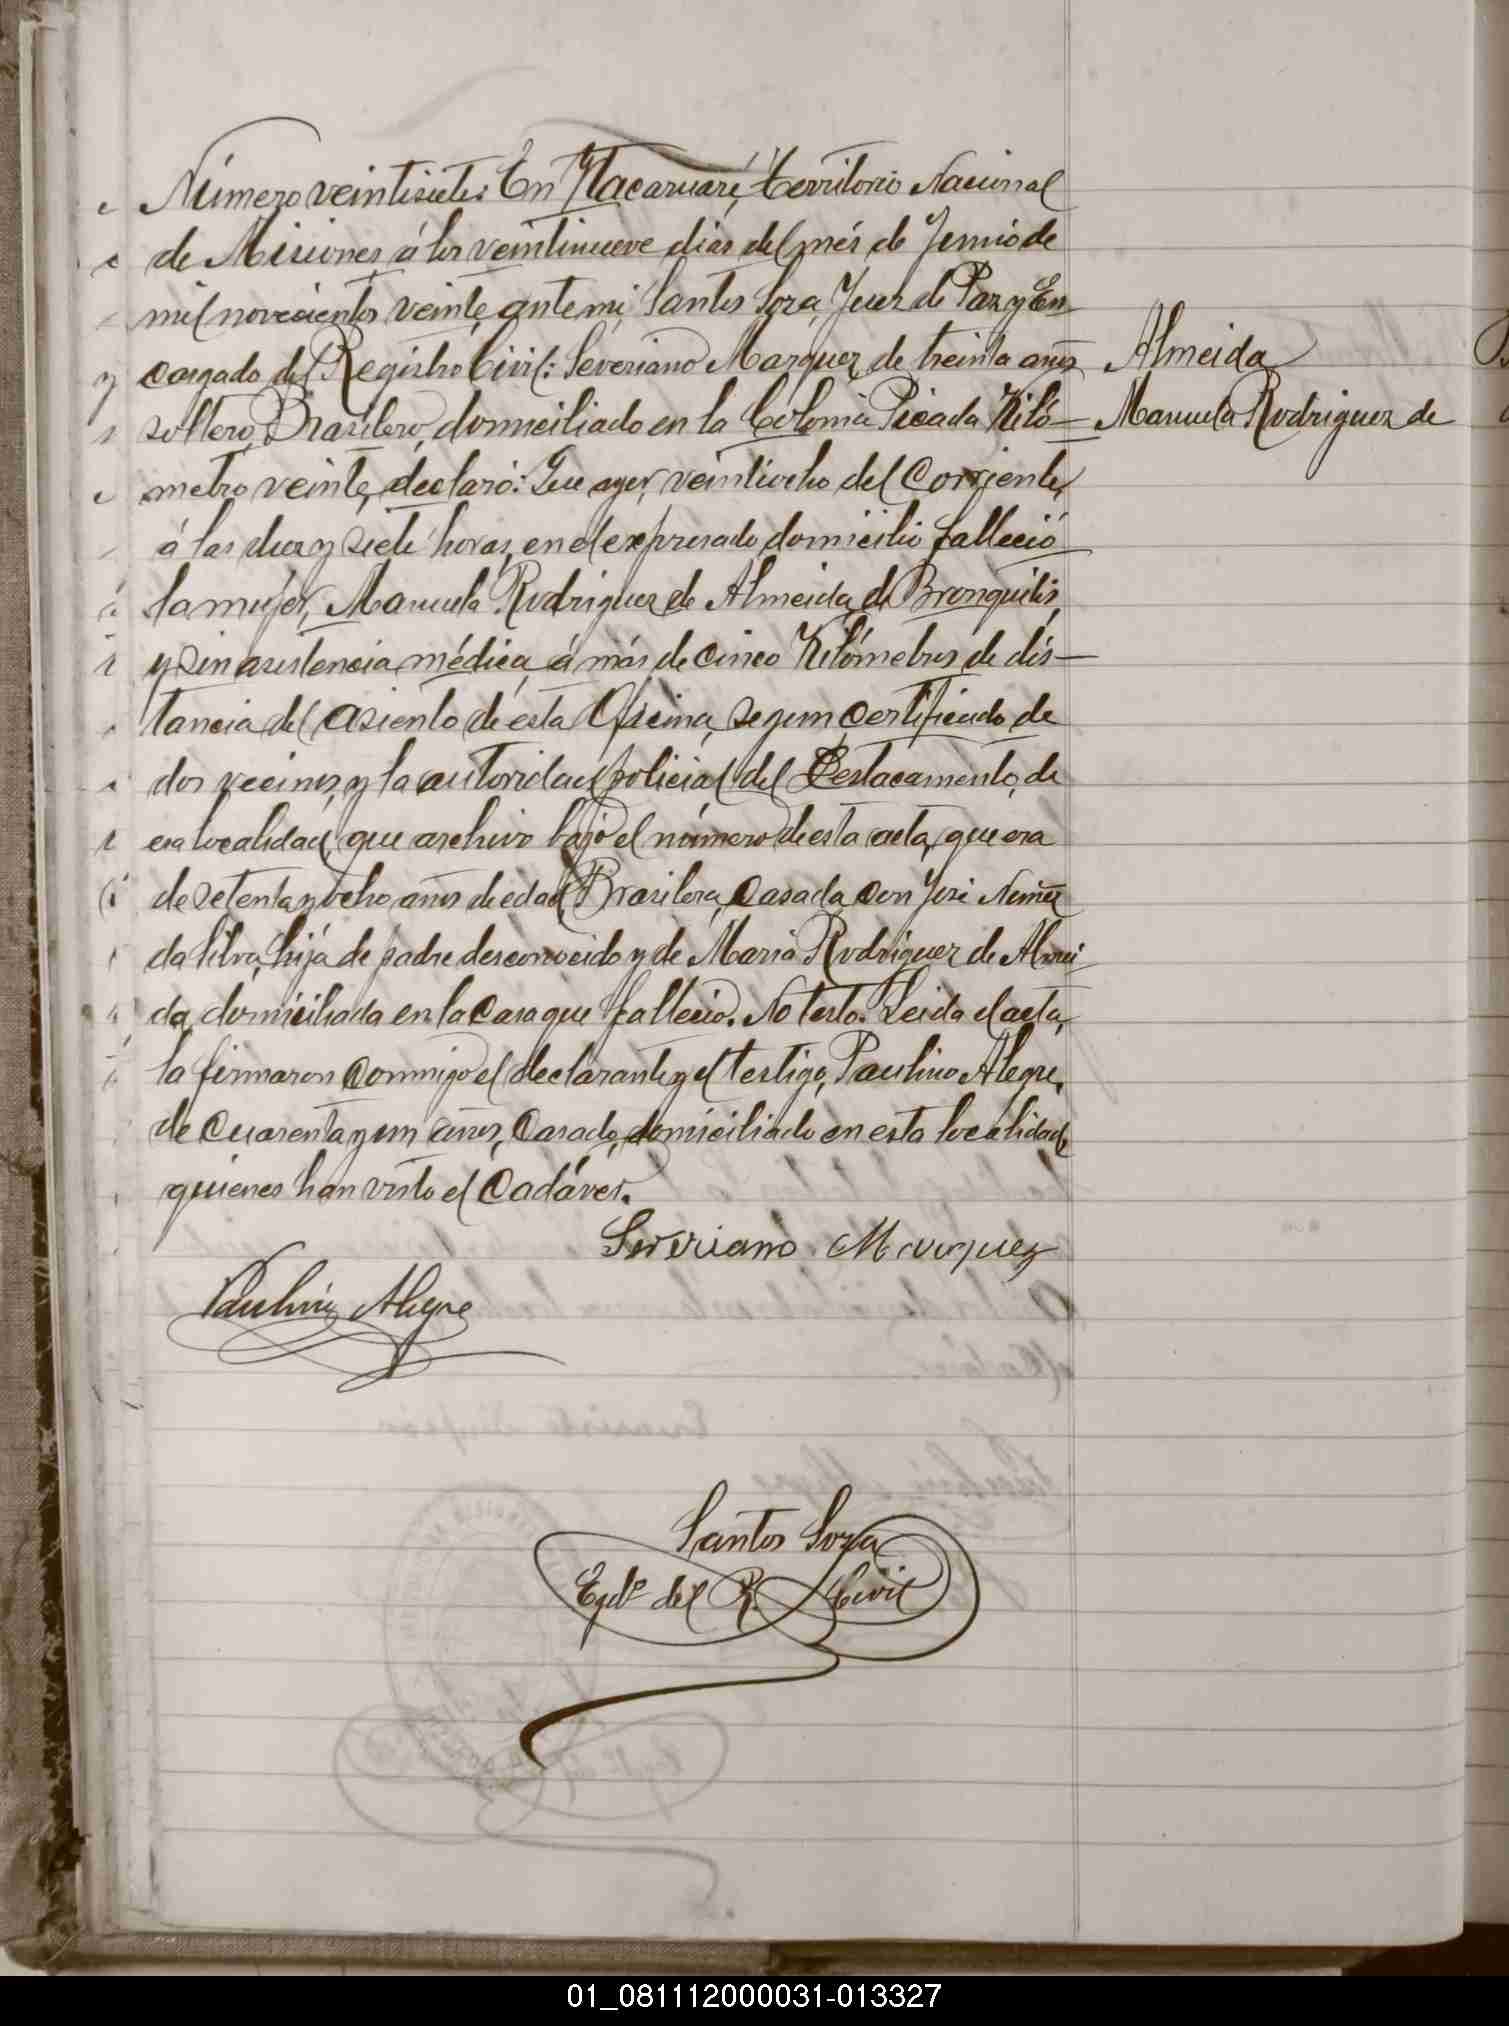 Número veintisiete: En Itacaruaré, territorio Nacional
de Misiones á los veintinueve dias del més de Junio de
mil novecientos veinte, ante mi, Santos Soza, Juez de Paz y En-
cargado del Registro Civil: Severiano Marquez, de treinta años
soltero, Brasilero, domiciliado en la Colonia Picada Kiló-
metro veinte, declaró: Que ayer, veintiocho del Corriente,
á las diez y siete horas, en el expresado domicilio falleció
la mujer, Manuela Rodriguez de Almeida, de Bronquitis,
y sin asistencia médica, á más de cinco Kilómetros de dis-
tancia del asiento de ésta Oficina, segun certificado de
dos vecinos, y la autoridad policial del Destacamento, de
esa localidad, que archivo bajo el número de esta acta, que era
de setenta y ocho años de edad, Brasilera, Casada con José Nuñez
da Silva, hija de padre desconocido y de Maria Rodriguez de Almei-
da, domiciliada en la Casa que falleció. No testó. Leida el acta,
la firmaron Conmigo el declarante y el testigo, Paulino Alegre,
de Cuarenta y un años, Casado, domiciliado en esta localidad,
quienes han visto el Cadáver.
Almeida
Manuela Rodriguez de
Severiano Marquez
Paulino Alegre
Santos Soza
Egdo del R. Civil
01_081112000031-013327